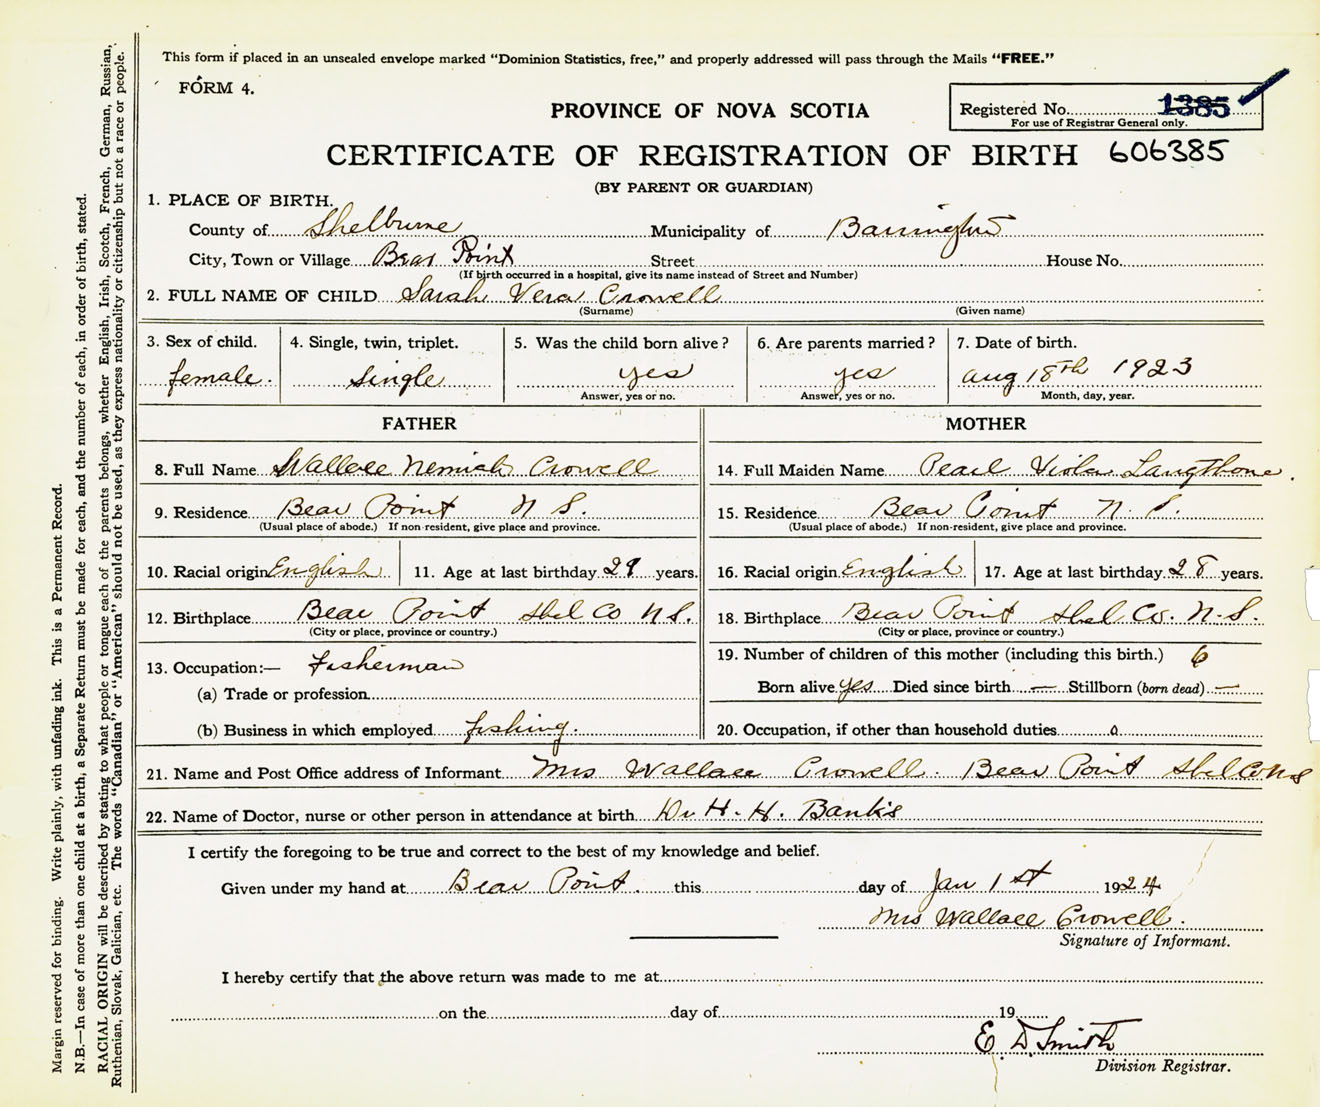 This form if placed in an unsealed envelope marked "Dominion Statistics, free," and properly addressed will pass through the Mails "FREE."
FORM 4.
PROVINCE OF NOVA SCOTIA
Registered No. 1385
For use of Registrar General only.
CERTIFICATE OF REGISTRATION OF BIRTH 606385
(BY PARENT OR GUARDIAN)
1. PLACE OF BIRTH.
County of Shelburne Municipality of Barrington
City, Town or Village Bear Point Street House No.
(If birth occurred in a hospital, give its name instead of Street and Number)
2. FULL NAME OF CHILD Sarah Vera Crowell
(Surname) (Given name)
3. Sex of child. 4. Single, twin, triplet. 5. Was the child born alive? 6. Are parents married? 7. Date of birth.
female. single yes yes Aug 18th 1923
Answer, yes or no. Answer, yes or no. Month, day, year.
FATHER MOTHER
8. Full Name Wallace Nemiah Crowell 14. Full Maiden Name Pearl Viola Langthorne.
9. Residence Bear Point N S. 15. Residence Bear Point N. S.
(Usual place of abode.) If non-resident, give place and province. (Usual place of abode.) If non-resident, give place and province.
10. Racial origin English 11. Age at last birthday 29 years. 16. Racial origin English 17. Age at last birthday 28 years.
12. Birthplace Bear Point Shel Co N S. 18. Birthplace Bear Point Shel Co. N. S.
(City or place, province or country.) (City or place, province or country.)
13. Occupation:— Fisherman 19. Number of children of this mother (including this birth.) 6
(a) Trade or profession Born alive yes Died since birth — Stillborn (born dead) —
(b) Business in which employed fishing. 20. Occupation, if other than household duties o
21. Name and Post Office address of Informant Mrs Wallace Crowell. Bear Point Shel Co N S
22. Name of Doctor, nurse or other person in attendance at birth Dr H. H. Banks
I certify the foregoing to be true and correct to the best of my knowledge and belief.
Given under my hand at Bear Point. this day of Jan 1st 1924
Mrs Wallace Crowell.
Signature of Informant.
I hereby certify that the above return was made to me at
on the day of 19
E. D. Smith
Division Registrar.
Margin reserved for binding. Write plainly, with unfading ink. This is a Permanent Record.
N.B.—In case of more than one child at a birth, a Separate Return must be made for each, and the number of each, in order of birth, stated.
RACIAL ORIGIN will be described by stating to what people or tongue each of the parents belongs, whether English, Irish, Scotch, French, German, Russian,
Ruthenian, Slovak, Galician, etc. The words "Canadian" or "American" should not be used, as they express nationality or citizenship but not a race or people.